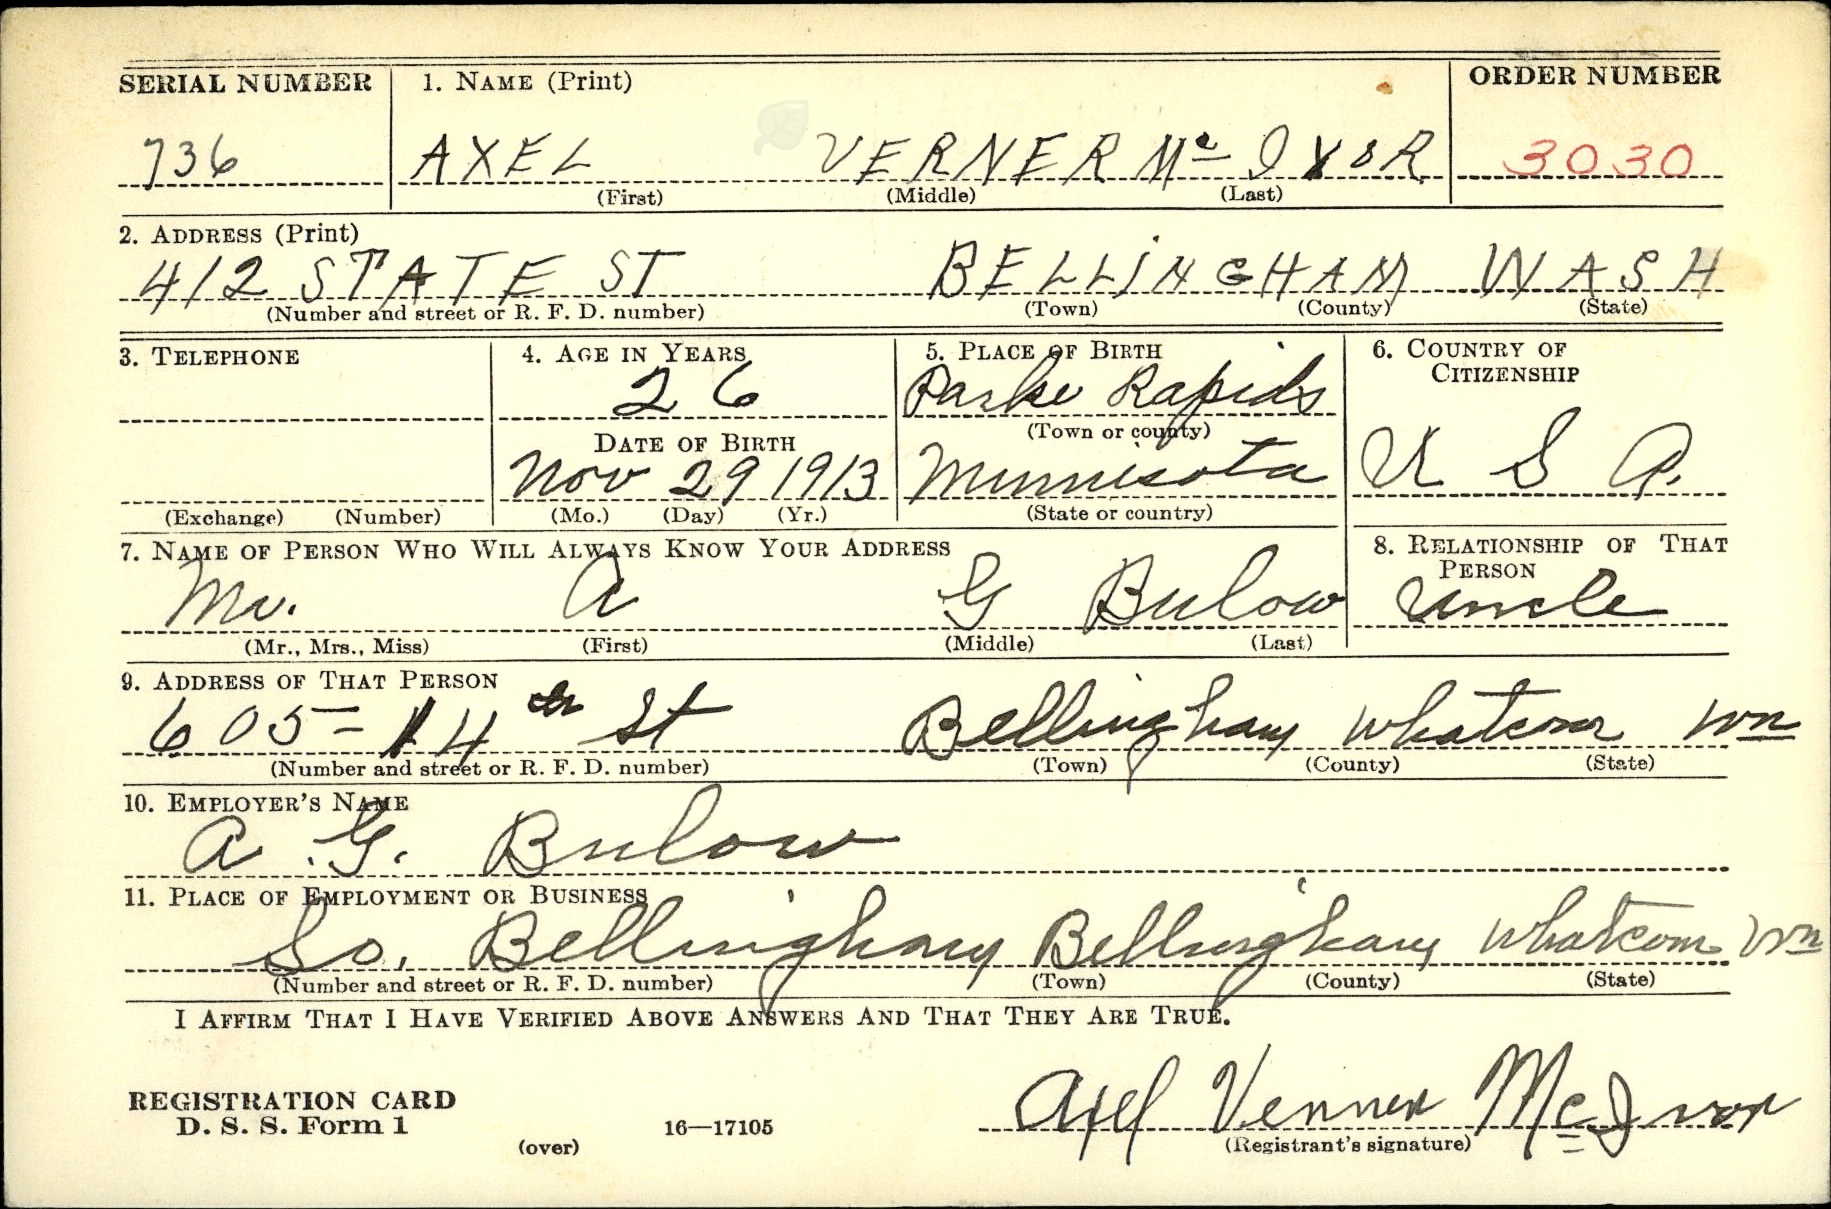 SERIAL NUMBER 1. NAME (Print) ORDER NUMBER
736 AXEL VERNER Mc IVOR 3030
(First) (Middle) (Last)
2. ADDRESS (Print)
412 STATE ST BELLINGHAM WASH
(Number and street or R. F. D. number) (Town) (County) (State)
3. TELEPHONE 4. AGE IN YEARS 5. PLACE OF BIRTH 6. COUNTRY OF CITIZENSHIP
26 Parke Rapids
DATE OF BIRTH (Town or county)
Nov 29 1913 Minnisota U S A.
(Exchange) (Number) (Mo.) (Day) (Yr.) (State or country)
7. NAME OF PERSON WHO WILL ALWAYS KNOW YOUR ADDRESS 8. RELATIONSHIP OF THAT PERSON
Mr. A G Bulow Uncle
(Mr., Mrs., Miss) (First) (Middle) (Last)
9. ADDRESS OF THAT PERSON
605-14th St Bellingham Whatcom Wn
(Number and street or R. F. D. number) (Town) (County) (State)
10. EMPLOYER'S NAME
A. G. Bulow
11. PLACE OF EMPLOYMENT OR BUSINESS
So. Bellingham Bellingham Whatcom Wn
(Number and street or R. F. D. number) (Town) (County) (State)
I AFFIRM THAT I HAVE VERIFIED ABOVE ANSWERS AND THAT THEY ARE TRUE.
Axel Verner McIvor
REGISTRATION CARD
D. S. S. Form 1 16—17105 (Registrant's signature)
(over)